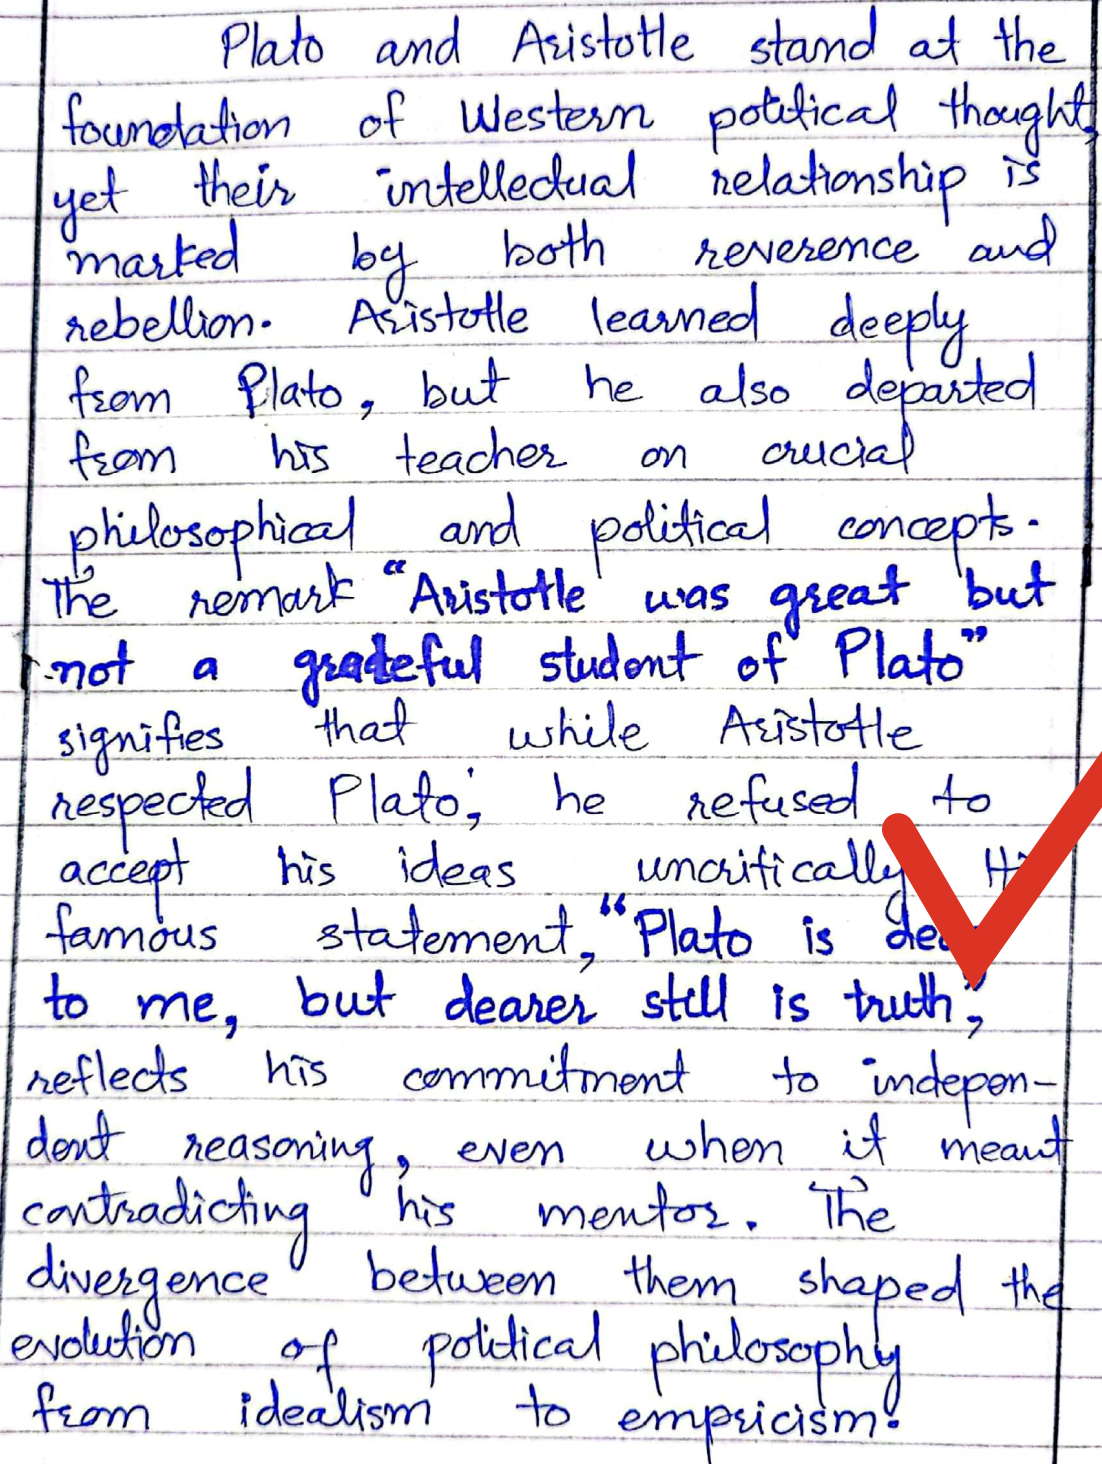 Plato and Aristotle stand at the
foundation of Western political thought,
yet their intellectual relationship is
marked by both reverence and
rebellion. Aristotle learned deeply
from Plato, but he also departed
from his teacher on crucial
philosophical and political concepts.
The remark "Aristotle was great but
not a grateful student of Plato"
signifies that while Aristotle
respected Plato, he refused to
accept his ideas uncritically
famous statement, "Plato is
to me, but dearer still is truth",
reflects his commitment to indepen-
dent reasoning, even when it meant
contradicting his mentor. The
divergence between them shaped the
evolution of political philosophy
from idealism to empricism.